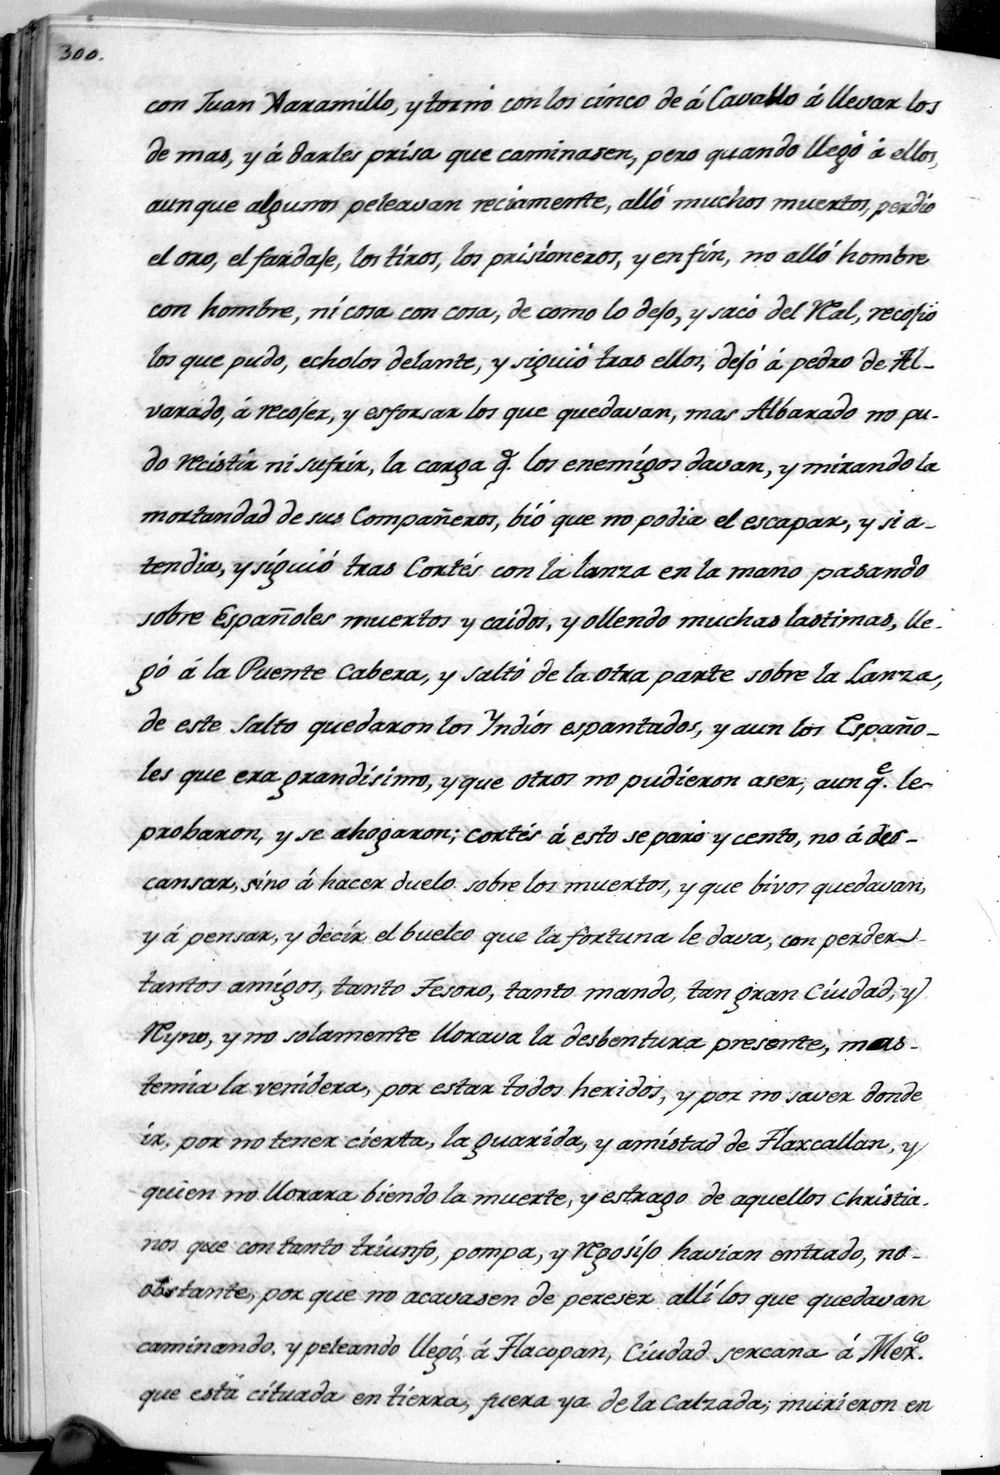 300.
con Juan Xaramillo, y tornó con los cinco de á Cavallo á llevar los
de mas, y á darles prisa que caminasen, pero quando llegó á ellos,
aunque algunos peleavan reciamente, alló muchos muertos, perdio
el oro, el fardaje, los tiros, los prisioneros, y en fin, no alló hombre
con hombre, ni cosa con cosa, de como lo dejo, y sacó del Real, recojio
los que pudo, echolos delante, y siguió tras ellos, dejó á pedro de Al-
varado, á recojer, y esforsar los que quedavan, mas Albarado no pu-
do recistir ni sufrir, la carga q.e los enemigos davan, y mirando la
mortandad de sus Compañeros, bió que no podia el escapar, y si a-
tendia, y siguió tras Cortés con la lanza en la mano pasando
sobre Españoles muertos y caidos, y ollendo muchas lastimas, lle-
gó á la Puente Cabera, y saltó de la otra parte sobre la Lanza,
de este salto quedaron los Yndios espantados, y aun los Españo-
les que era grandisimo, y que otros no pudieron aser, aunq.e le
probaron, y se ahogaron; cortés á esto se paró y cento, no á des-
cansar, sino á hacer duelo sobre los muertos, y que bivos quedavan,
y á pensar, y decir el buelco que la fortuna le dava, con perder
tantos amigos, tanto Tesoro, tanto mando, tan gran Ciudad, y
Reyno, y no solamente llorava la desbentura presente, mas
temia la venidera, por estar todos heridos, y por no saver donde
ir, por no tener cierta, la guarida, y amistad de Tlaxcallan, y
quien no llorara biendo la muerte, y estrago de aquellos christia-
nos que con tanto triunfo, pompa, y Rgosijo havian entrado, no-
obstante, por que no acavasen de pereser allí los que quedavan
caminando, y peleando llegó, á Tlacopan, Ciudad sercana á Mex.co
que está cituada en tierra, fuera ya de la Calzada; murieron en